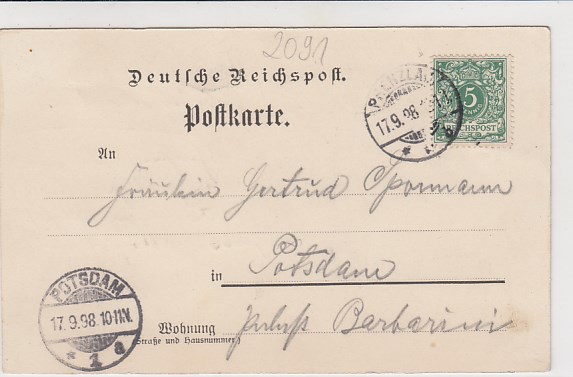 2091
Deutsche Reichspost.
Postkarte.
PRENZLAU
17.9.98
5
REICHSPOST
An
Fräulein Gertrud Spormann
in Potsdam
POTSDAM
17.9.98.10-11N.
* 1 a
Wohnung Palast Barbarini
(Straße und Hausnummer)